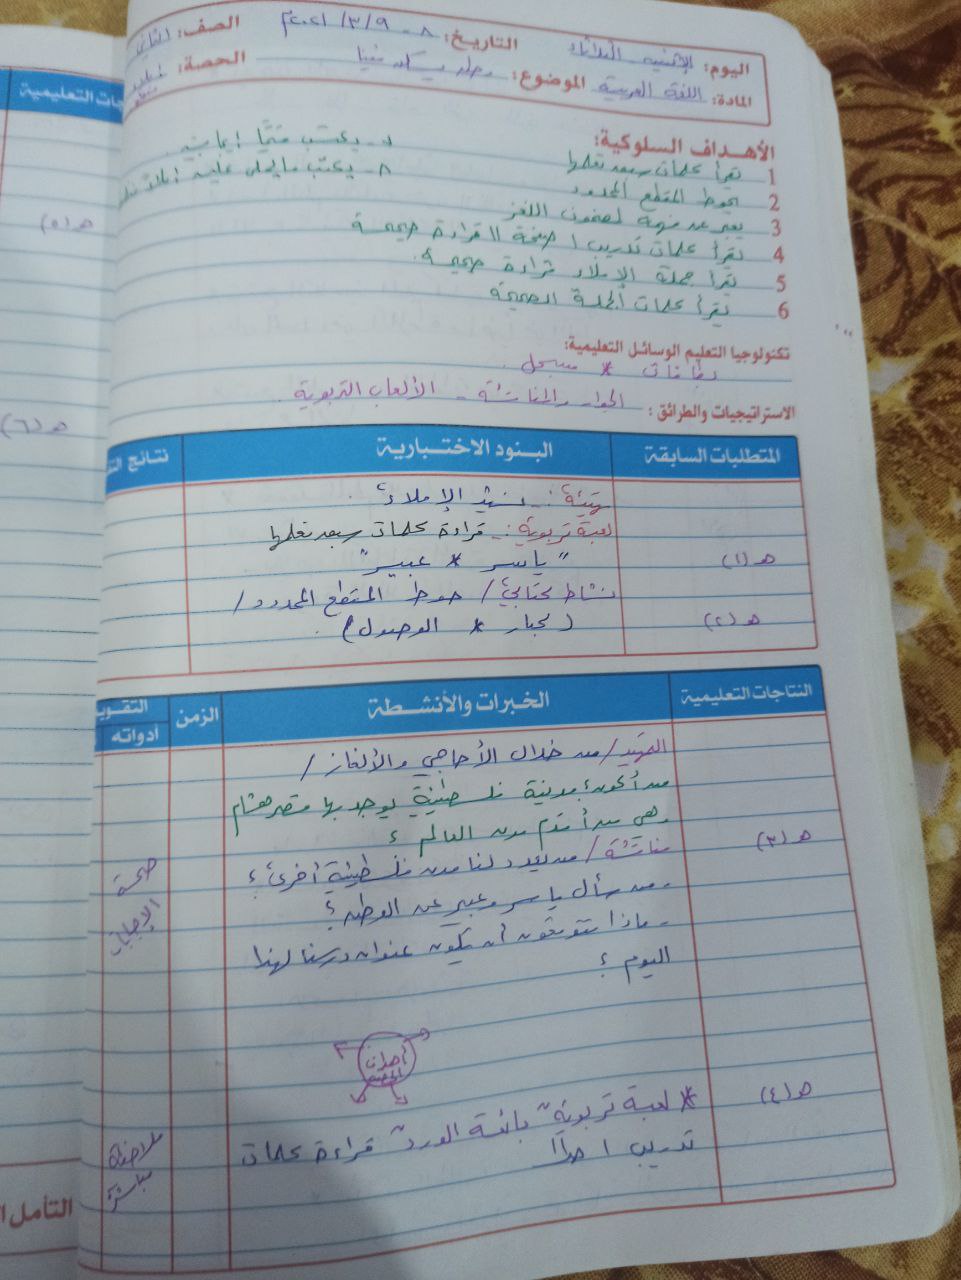 اليوم: الإثنين الثلاثاء التاريخ: ٨ - ٩ / ٣ / ٢٠٢١م الصف: الثاني
المادة: اللغة العربية الموضوع: وطن يسكن فينا الحصة:
الأهداف السلوكية:
1 تقرأ كلمات سبق تعلمها
2 يحوط المقطع الممدود
3 يعبر عن فهمه لمضمون اللغز
4 تقرأ كلمات تدريب ١ صفحة ١١ قراءة صحيحة
5 تقرأ جملة الإملاء قراءة صحيحة.
6 تقرأ كلمات الجملة الصحيحة
٧- يكتب فنيًّا إملائيه
٨- يكتب ما يملى عليه إملاءً
تكنولوجيا التعليم الوسائل التعليمية:
بطاقات * مسجل.
الاستراتيجيات والطرائق: الحوار والمناقشة - الألعاب التربوية.
المتطلبات السابقة البنود الاختبارية نتائج
تهيئة:- نشيد الإملاء.
لعبة تربوية:- قراءة كلمات سبق تعلمها
هـ (١) "ياسر * عبير"
نشاط كتابي / حوط المقطع الممدود /
هـ (٢) ( كبار * الوصول).
النتاجات التعليمية الخبرات والأنشطة الزمن التقويم
أدواته
التمهيد / من خلال الأحاجي والألغاز /
من أكون؛ مدينة فلسطينية يوجد بها قصر هشام
وهي من أقدم مدن العالم ؟
هـ (٣) مناقشة / من يعدد لنا مدن فلسطينية أخرى؟ صحة
- من سأل ياسر وعبير عن الوطن؟ الإجابات
- ماذا تتوقعون أن يكون عنوان درسنا لهذا
اليوم ؟
أهداف
الحصة
هـ (٤) * لعبة تربوية "بائعة الورد" قراءة كلمات ملاحظة
تدريب ١ ص١١ مباشرة
التأمل
هـ (٥)
هـ (٦)